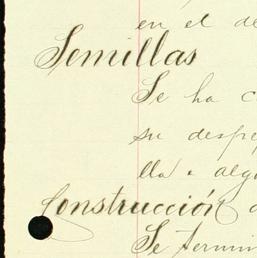 en el de
Semillas
Se ha c
su despe
lla a algu
Construcción d
Se termin